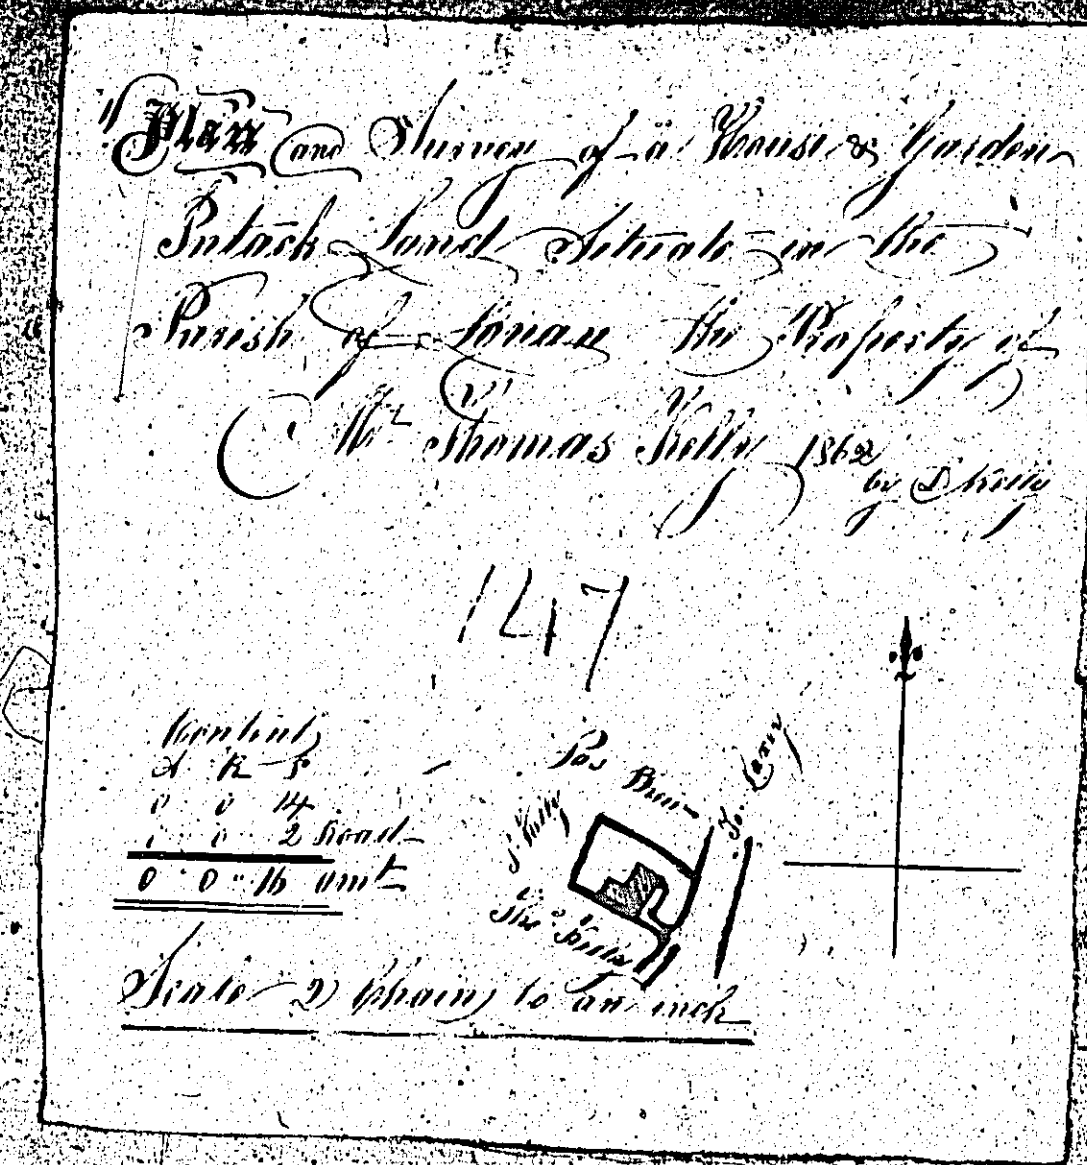 Plan and Survey of a House & Garden
Intack Land Situate in the
Parish of Lonan the Property of
Mr Thomas Kelly 1862
by D Kelly
147
Content
A R P
0 0 14
0 0 2 Road
0 0 16 amt
Jo. Laxey
Thos Kelly
Scale 2 Chains to an inch